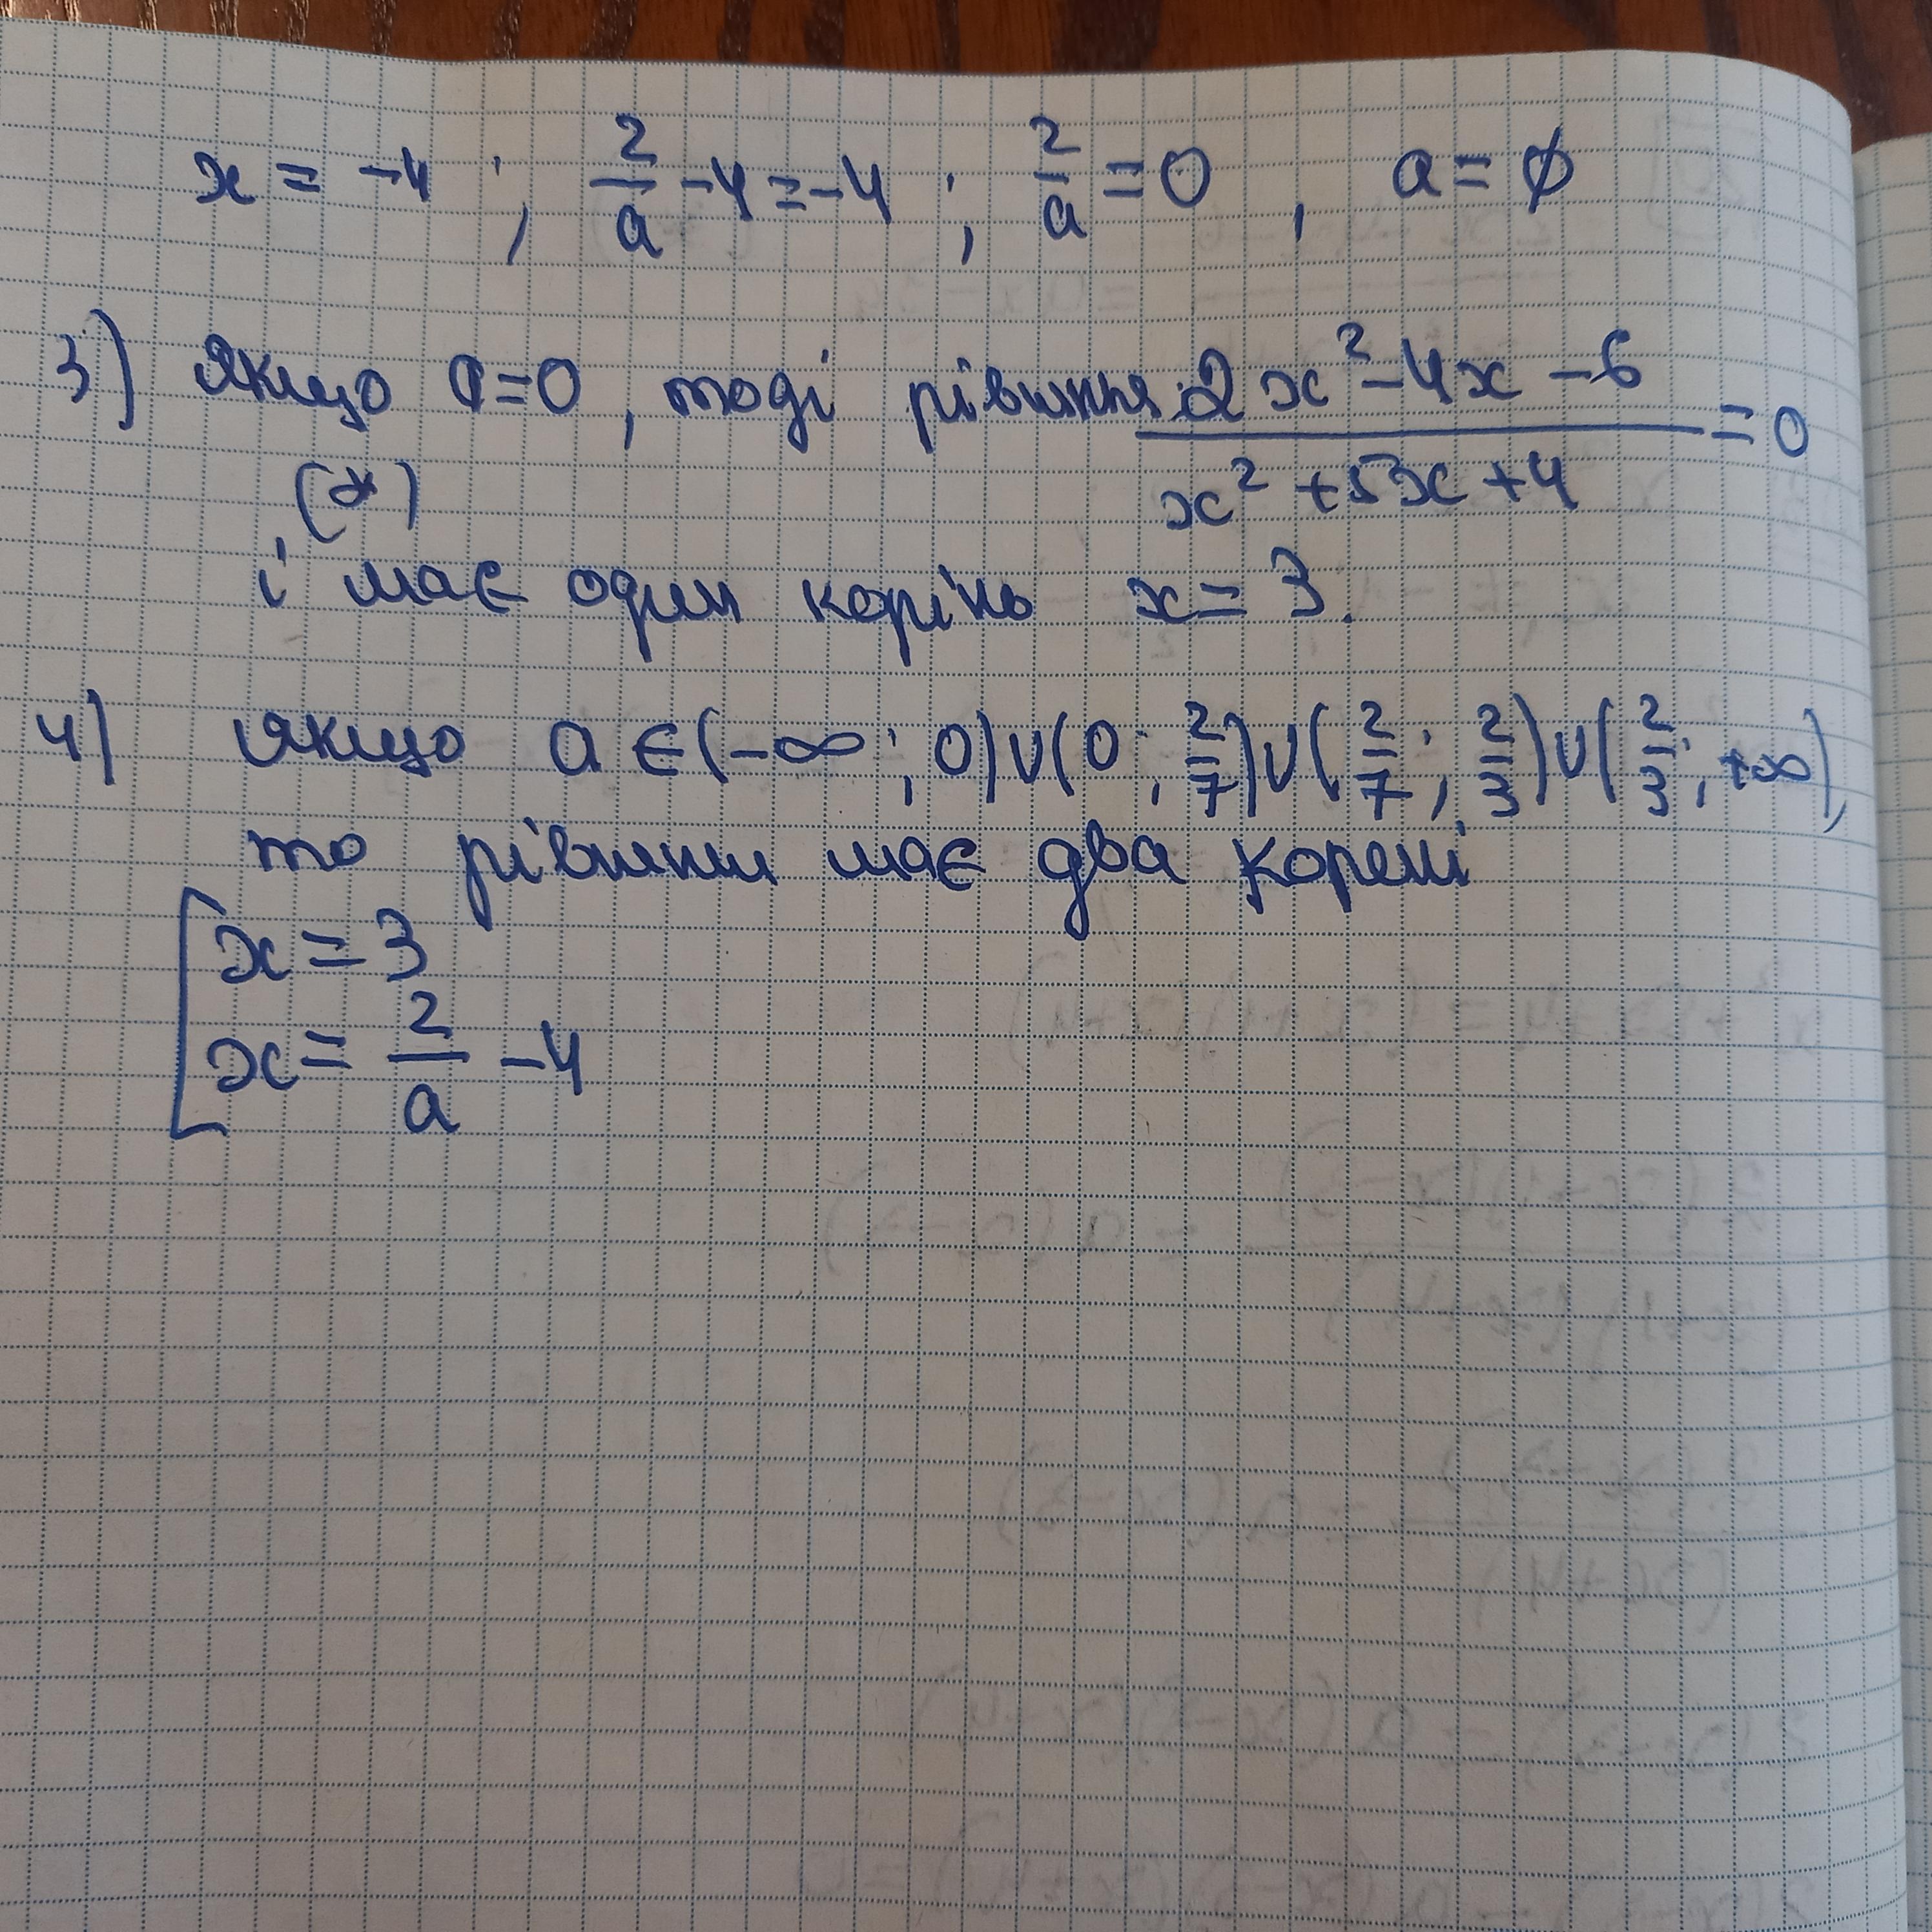 x = -4 ; 2/a - 4 = -4 ; 2/a = 0 , a = ∅
3) Якщо a = 0, тоді рівняння (2x² - 4x - 6)/(x² + 5x + 4) = 0
(*)
і має один корінь x = 3.
4) Якщо a ∈ (-∞; 0) ∪ (0; 2/7) ∪ (2/7; 2/3) ∪ (2/3; +∞),
то рівняння має два корені
[ x = 3
x = 2/a - 4